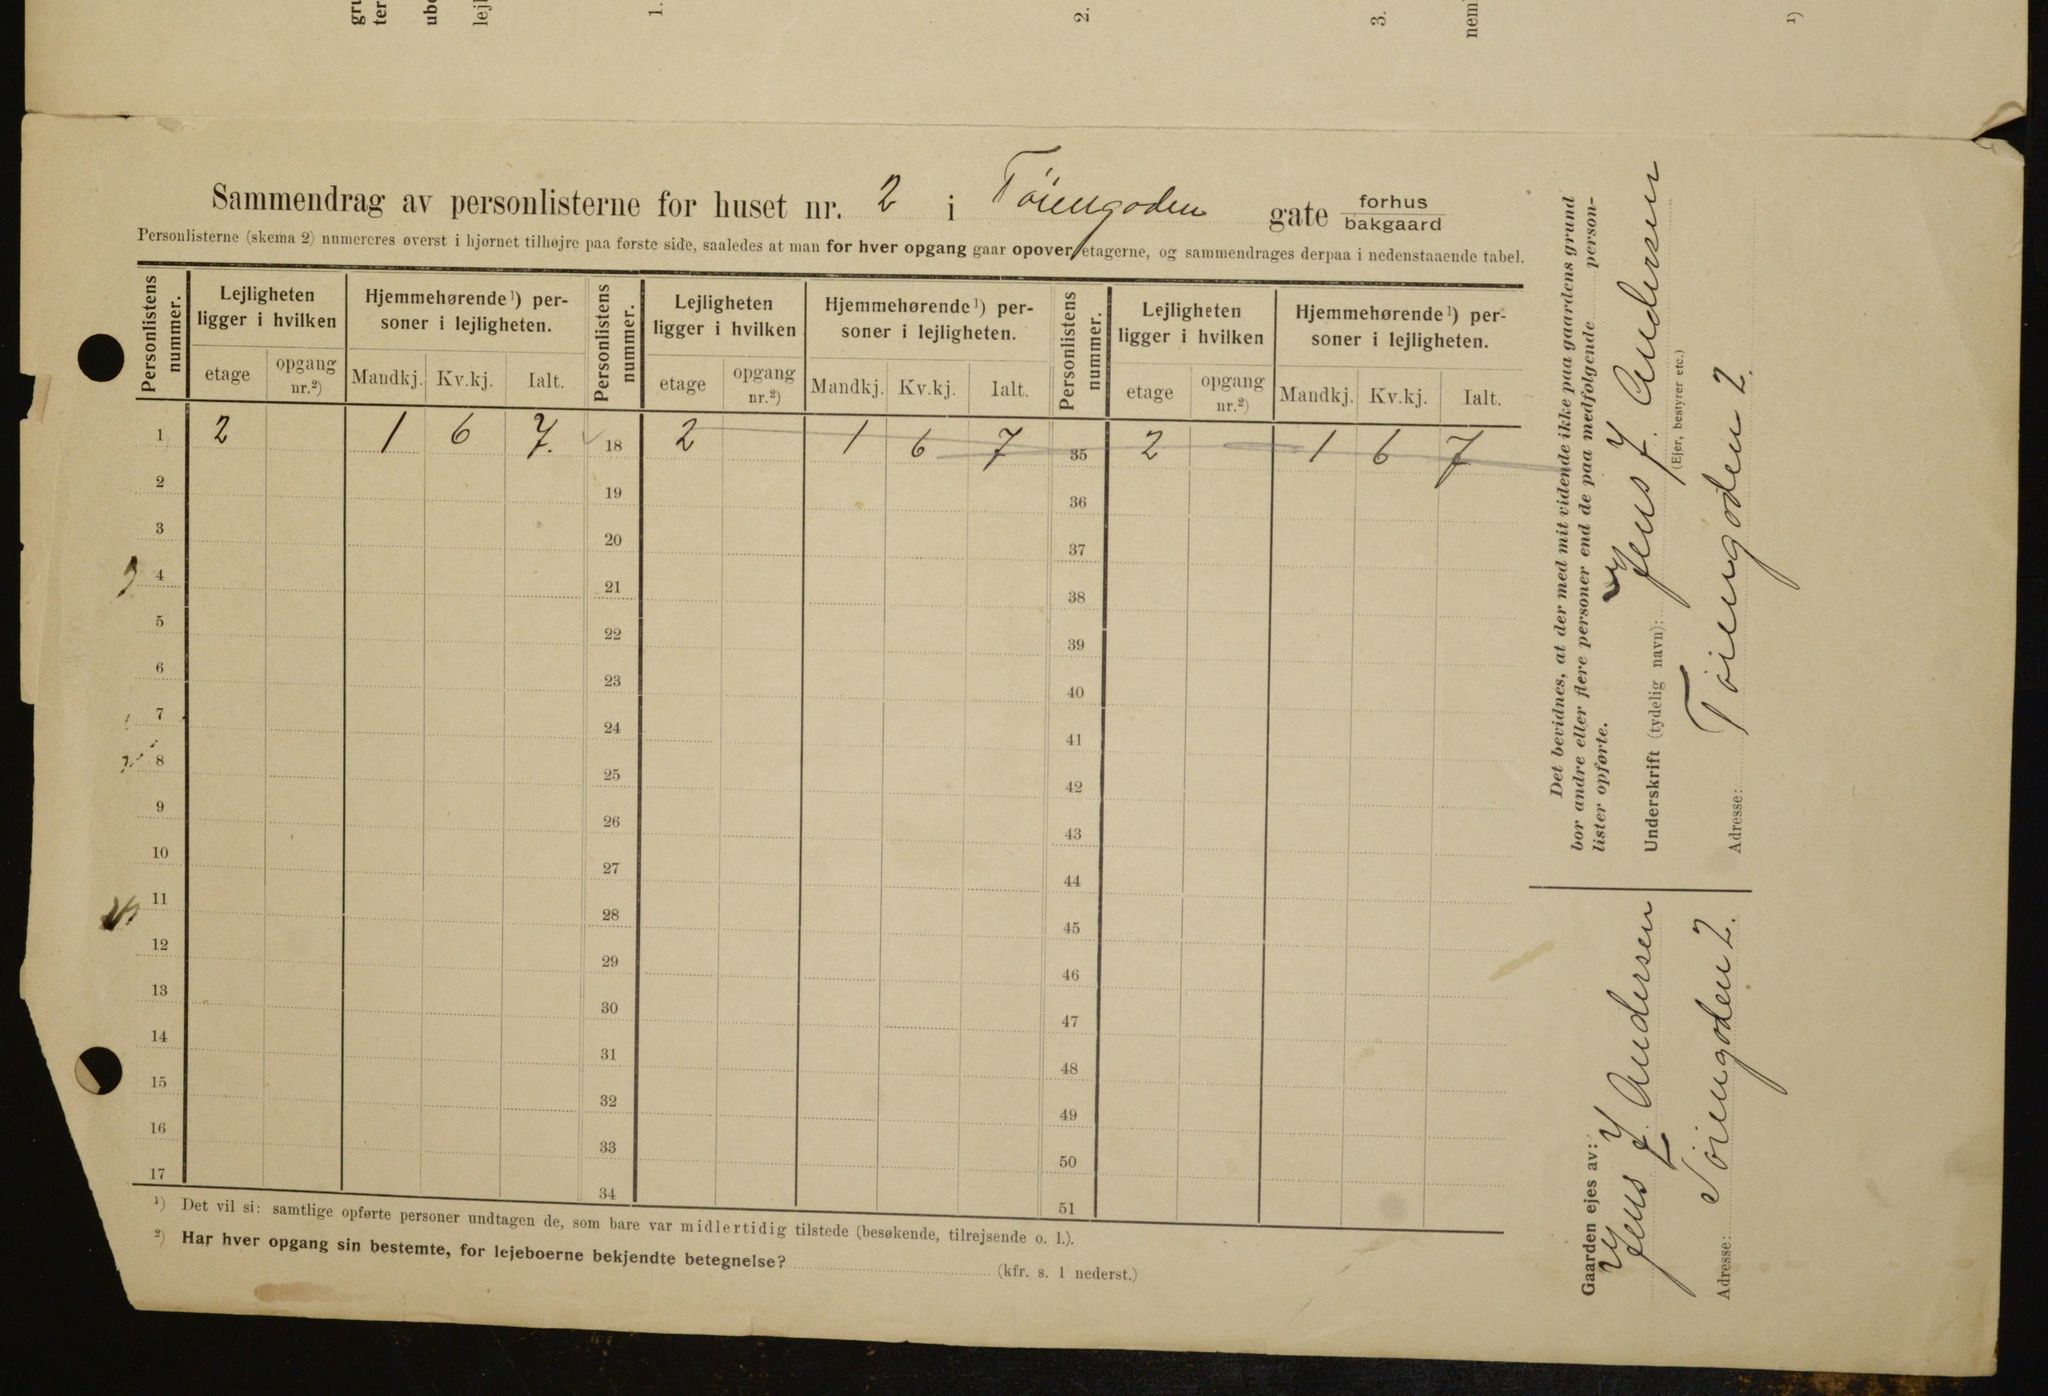 gru
ter
ube
lejl
1.
2.
3.
nem
1)
Sammendrag av personlisterne for huset nr. 2 i Tøiengoden gate forhus bakgaard
Personlisterne (skema 2) numereres øverst i hjørnet tilhøjre paa første side, saaledes at man for hver opgang gaar opover etagerne, og sammendrages derpaa i nedenstaaende tabel.
Personlistens nummer. Lejligheten ligger i hvilken Hjemmehørende ¹) personer i lejligheten. Personlistens nummer. Lejligheten ligger i hvilken Hjemmehørende ¹) personer i lejligheten. Personlistens nummer. Lejligheten ligger i hvilken Hjemmehørende ¹) personer i lejligheten.
etage opgang nr.²) Mandkj. Kv.kj. Ialt. etage opgang nr.²) Mandkj. Kv.kj. Ialt. etage opgang nr.²) Mandkj. Kv.kj. Ialt.
1 2 1 6 7. 18 2 1 6 7 35 2 1 6 7
2 19 36
3 20 37
4 21 38
5 22 39
6 23 40
7 24 41
8 25 42
9 26 43
10 27 44
11 28 45
12 29 46
13 30 47
14 31 48
15 32 49
16 33 50
17 34 51
¹) Det vil si: samtlige opførte personer undtagen de, som bare var midlertidig tilstede (besøkende, tilrejsende o. l.).
²) Har hver opgang sin bestemte, for lejeboerne bekjendte betegnelse? (kfr. s. 1 nederst.)
Det bevidnes, at der med mit vidende ikke paa gaardens grund
bor andre eller flere personer end de paa medfølgende person-
lister opførte.
Underskrift (tydelig navn): Jens J. Andersen
(Ejer, bestyrer etc.)
Adresse: Tøiengoden 2.
Gaarden ejes av:
Jens J. Andersen
Adresse: Tøiengoden 2.